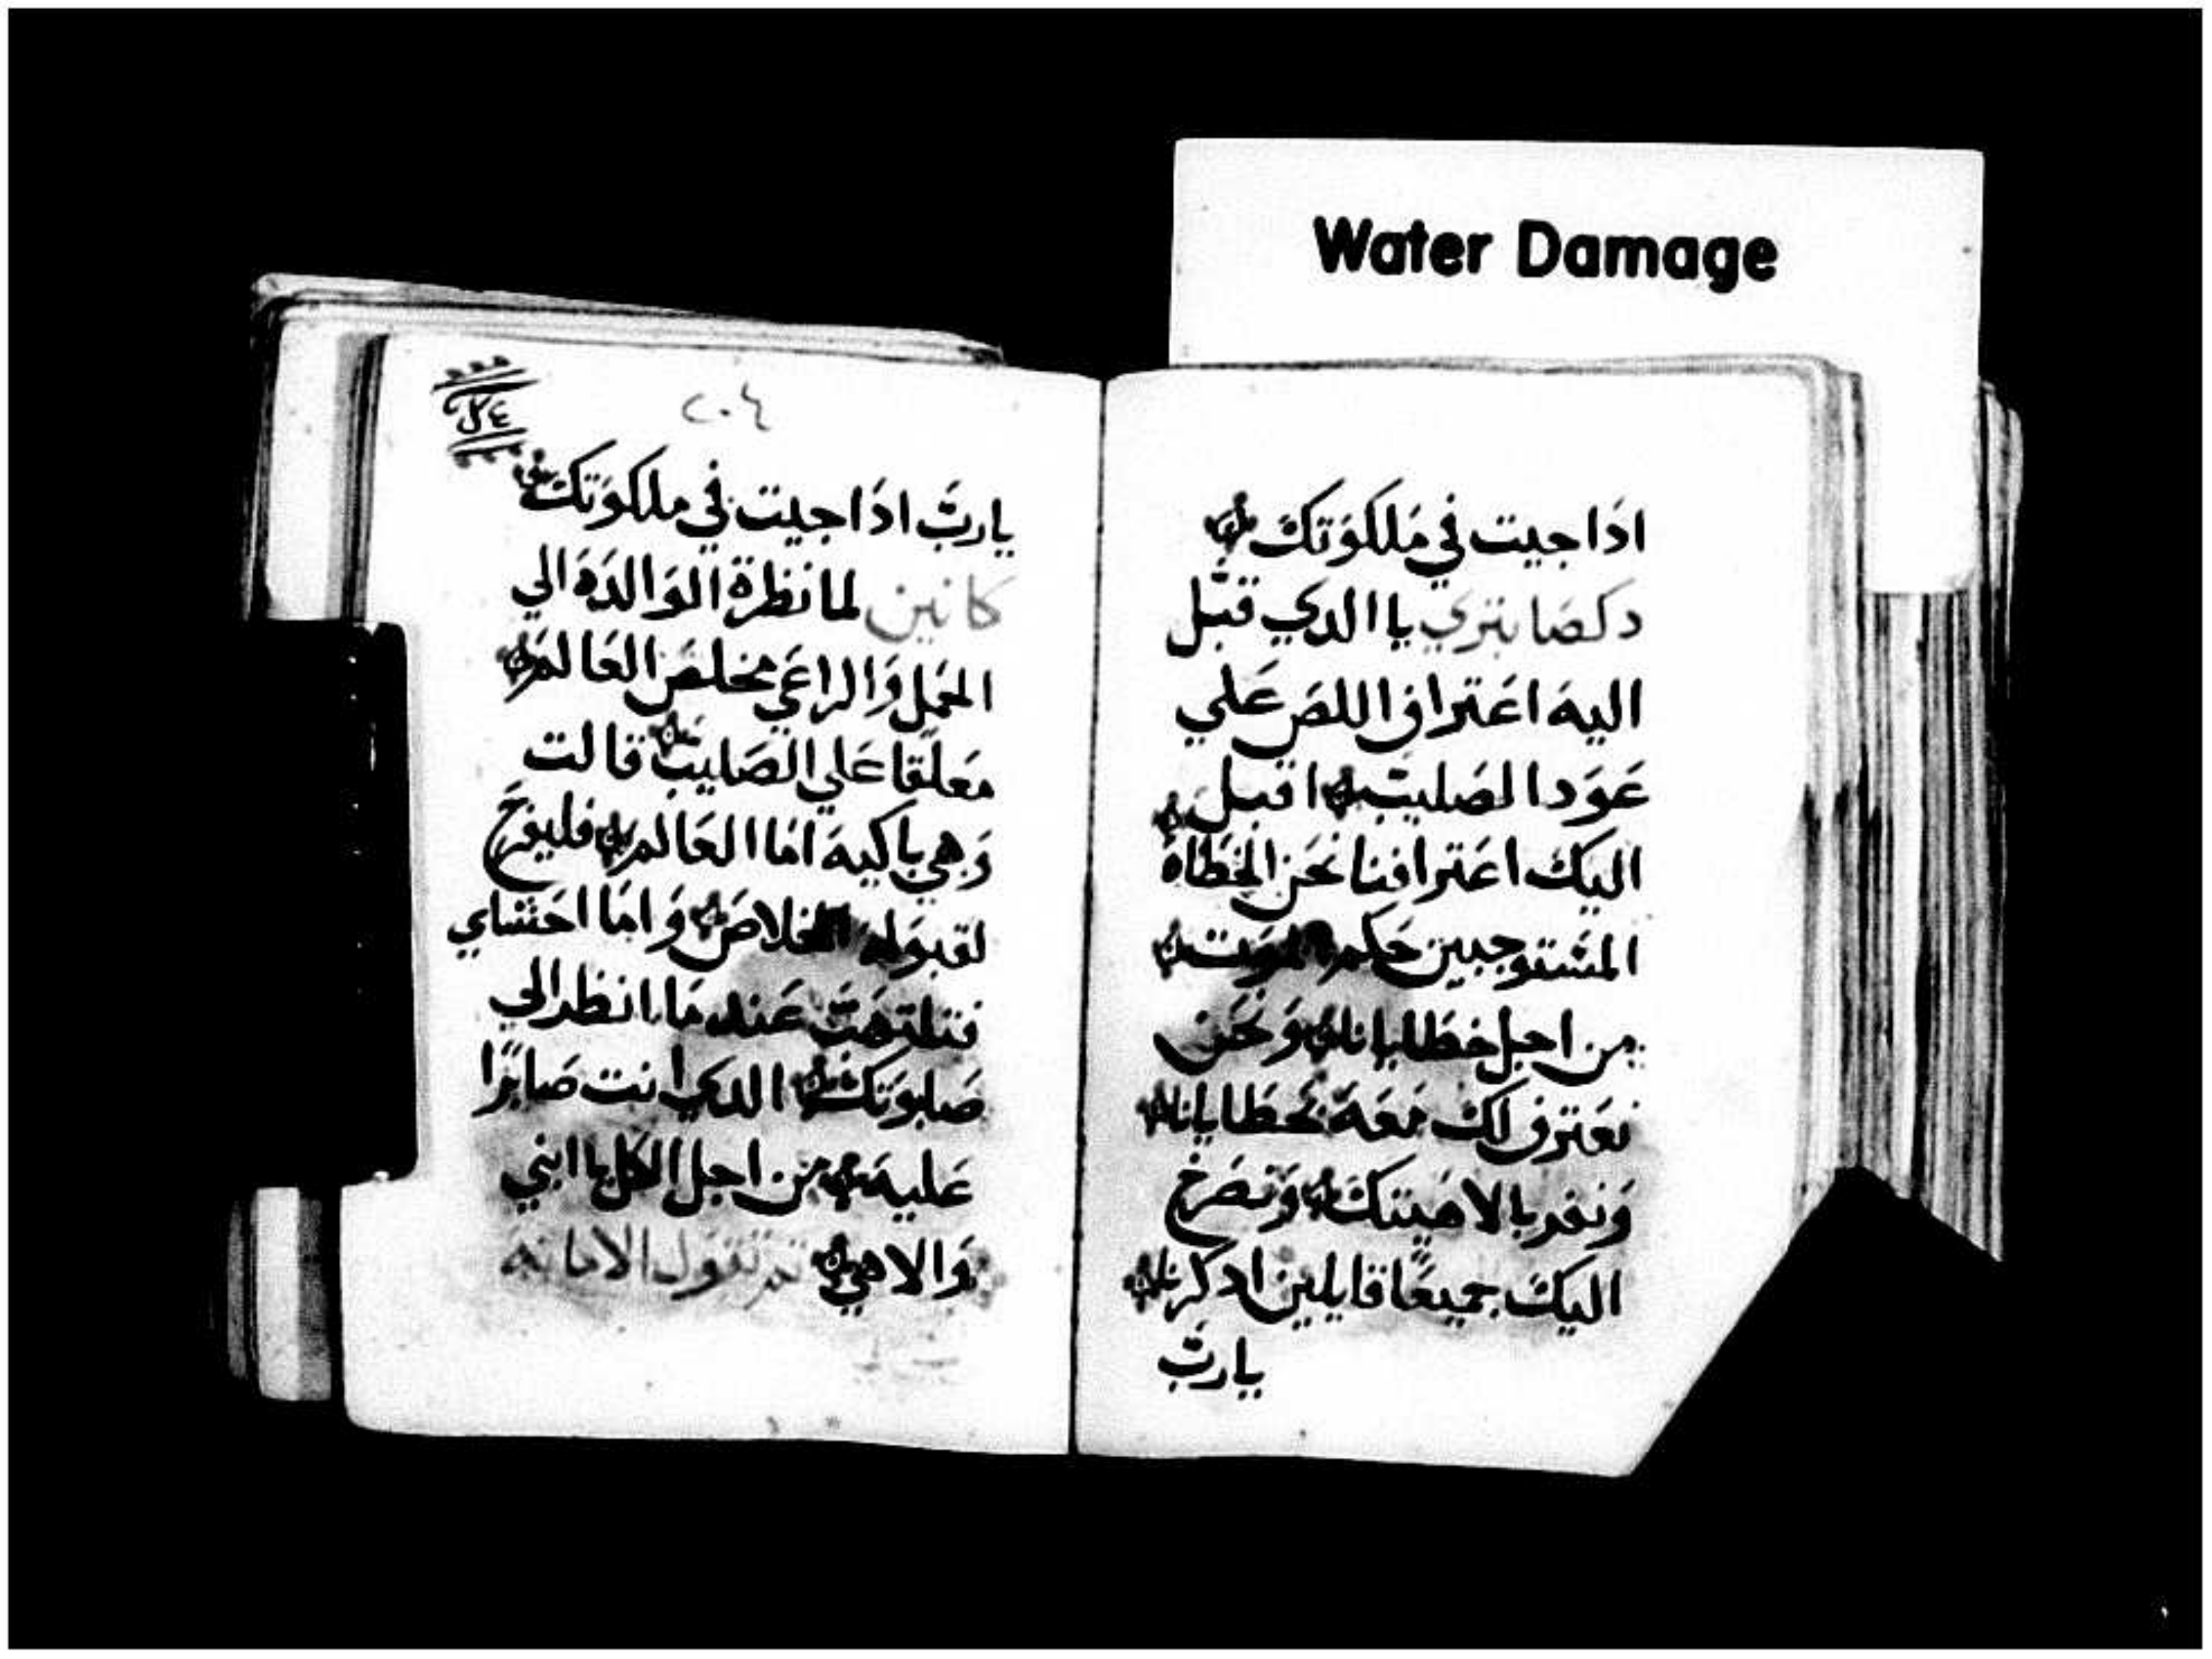 Water Damage
اذا جيت في ملكوتك
دكصابتري يا الدي قبل
اليه اعتراف اللص علي
عود الصليب اقبل
اليك اعترافنا نحن الخطاه
المستوجبين حكم الموت
من اجل خطايانا ونحن
نعترف لك معه بخطايانا
ونقر بالاهيتك ونصرخ
اليك جميعًا قايلين ادكرنا
يارب
٢٠٤
يارب اذا جيت في ملكوتك
كانين لما نظرة الوالده الي
الحمل والراعي مخلص العالم
معلقا علي الصليب قالت
وهي باكيه اما العالم فليفرح
لقبوله الخلاص واما احشاي
فتلتهب عند ما انظر الي
صلبوتك الدي انت صابرًا
عليه من اجل الكل يا ابني
والاهي ثم تقول الامانه